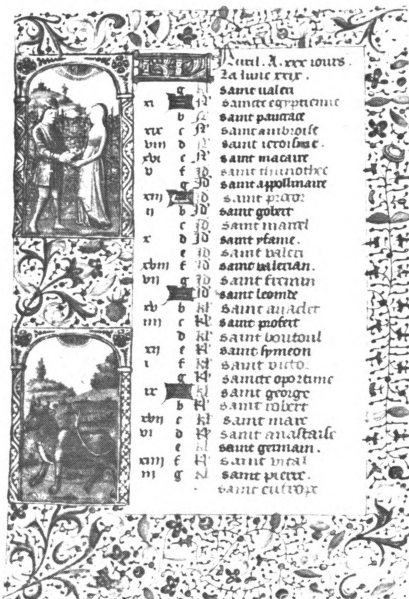 Auril. A. xxx iours.
La lune xxix.
g saint valeri
xi saincte egyptienne
b saint pancrace
xix c saint ambroise
viii d saint
xvi e saint macaire
v f saint thimothee
g saint appollinaire
xiii saint
ii b Id saint gobert
c Id saint marcel
x d Id saint
e Id saint valeri
xviii f Id saint valerian.
vii g Id saint firmin
Id saint leonide
xv b kl saint anaclet
iiii c kl saint
d kl saint boutoul
xii e kl saint symeon
i f kl saint victor.
g kl saincte oportune
ix kl saint george
b kl saint robert
xvii c kl saint marc
vi d kl saint anastaise
e kl saint germain.
xiiii f kl saint vital
iii g kl saint pierre.
saint eutrope